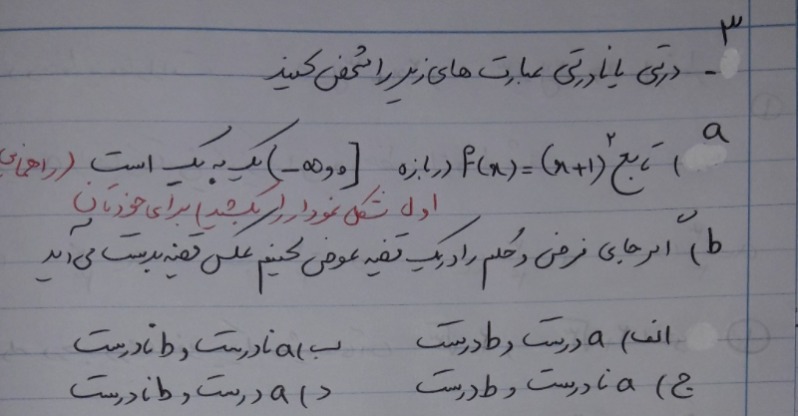 ۳- درستی یا نادرستی عبارت های زیر را مشخص کنید
a) تابع f(x)=(x+1)² در بازه (-∞,0] یک به یک است (راهنمایی
اول شکل نمودار را بکشید) برای خودتان
b) اگر جای فرض و حکم را در یک قضیه عوض کنیم عکس قضیه بدست می آید
الف) a درست و b درست ب) a نادرست و b نادرست
ج) a نادرست و b درست د) a درست و b نادرست